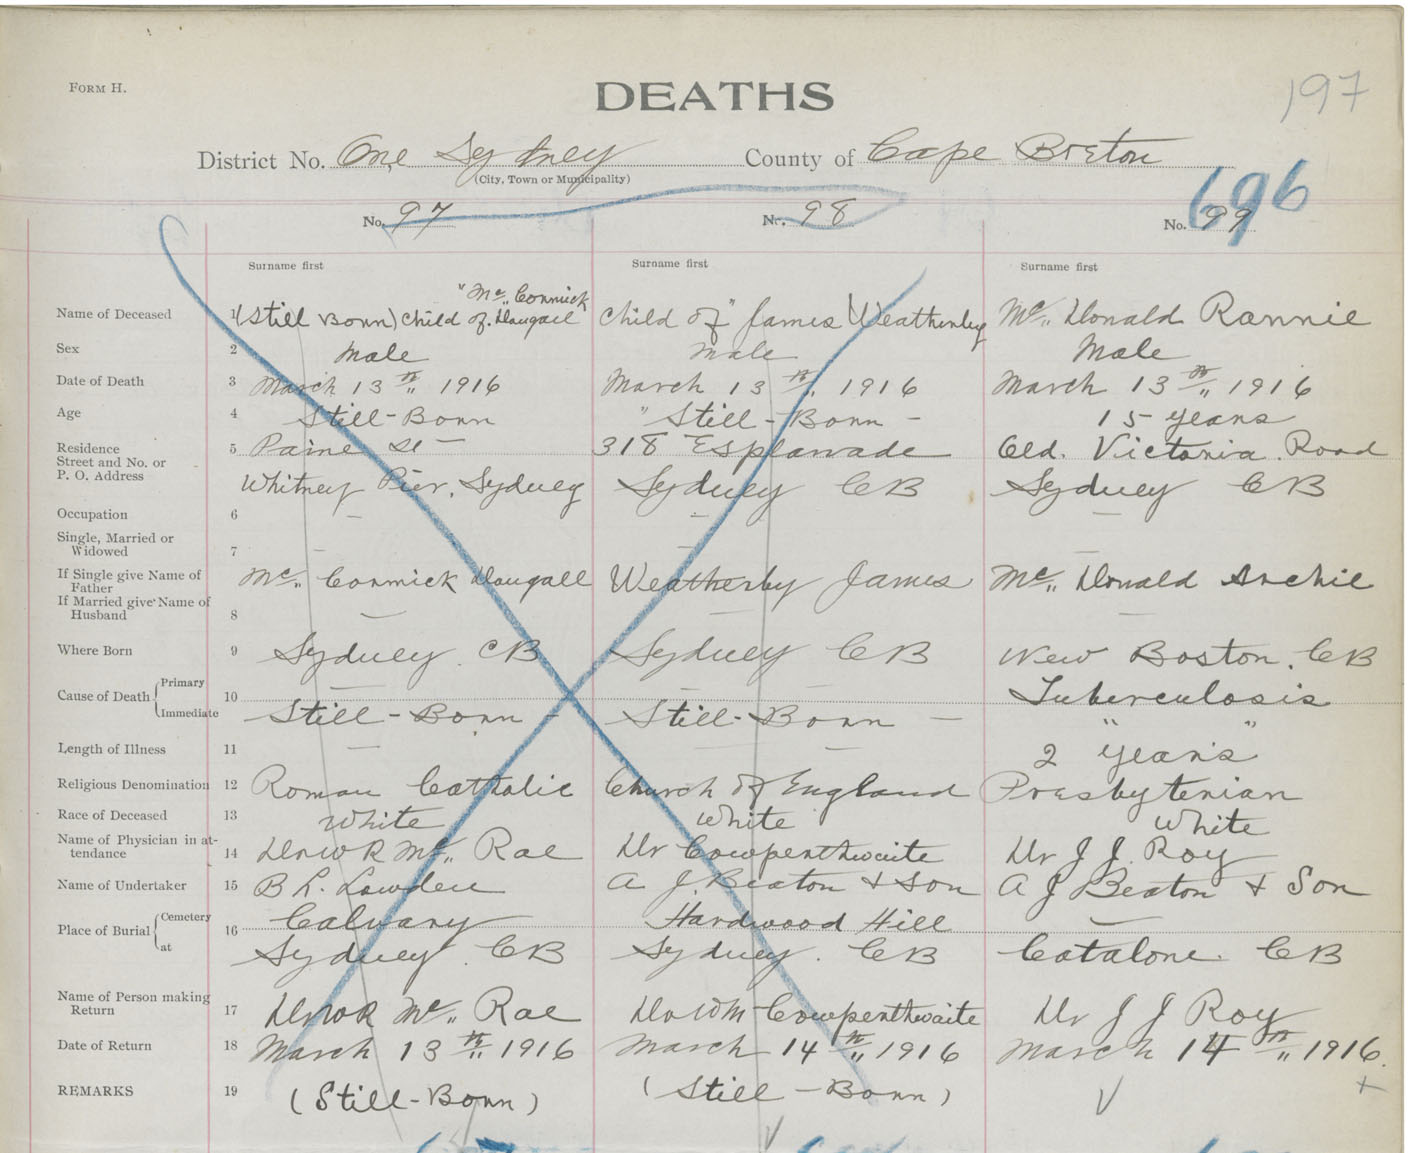 FORM H.
DEATHS
197
District No. One Sydney County of Cape Breton
(City, Town or Municipality)
696
No. 97 No. 98 No. 99
Surname first Surname first Surname first
"Mc,, Cormick
Name of Deceased 1 (Still Born) Child of. Dougall Child of" James Weatherby Mc,, Donald Rannie
Sex 2 Male Male Male
Date of Death 3 March 13th,, 1916 March 13th,, 1916 March 13th,, 1916
Age 4 Still-Born "Still-Born - 15 years
Residence 5 Paine St 318 Esplanade Old. Victoria. Road
Street and No. or
P. O. Address Whitney Pier, Sydney Sydney CB Sydney CB
Occupation 6 — — —
Single, Married or
Widowed 7 — — —
If Single give Name of
Father Mc,, Cormick Dougall Weatherby James Mc,, Donald Archie
If Married give Name of
Husband 8 — — —
Where Born 9 Sydney. CB Sydney CB New Boston. CB
Cause of Death { Primary 10 — — — Tuberculosis
Immediate Still-Born - Still-Born — " "
Length of Illness 11 — — — 2 years
Religious Denomination 12 Roman Catholic Church of England Presbyterian
Race of Deceased 13 White White White
Name of Physician in at-
tendance 14 Dr W R Mc,, Rae Dr Cowpenthwaite Dr J J. Roy
Name of Undertaker 15 B L. Lowden A J. Beaton & Son A J Beaton & Son
Place of Burial { Cemetery 16 Calvary Hardwood Hill —
at Sydney. CB Sydney. CB Catalone. CB
Name of Person making
Return 17 Dr W R Mc,, Rae Dr Wm Cowpenthwaite Dr J J Roy
Date of Return 18 March 13th,, 1916 March 14th,, 1916 March 14th,, 1916.
REMARKS 19 (Still-Born) (Still-Born)